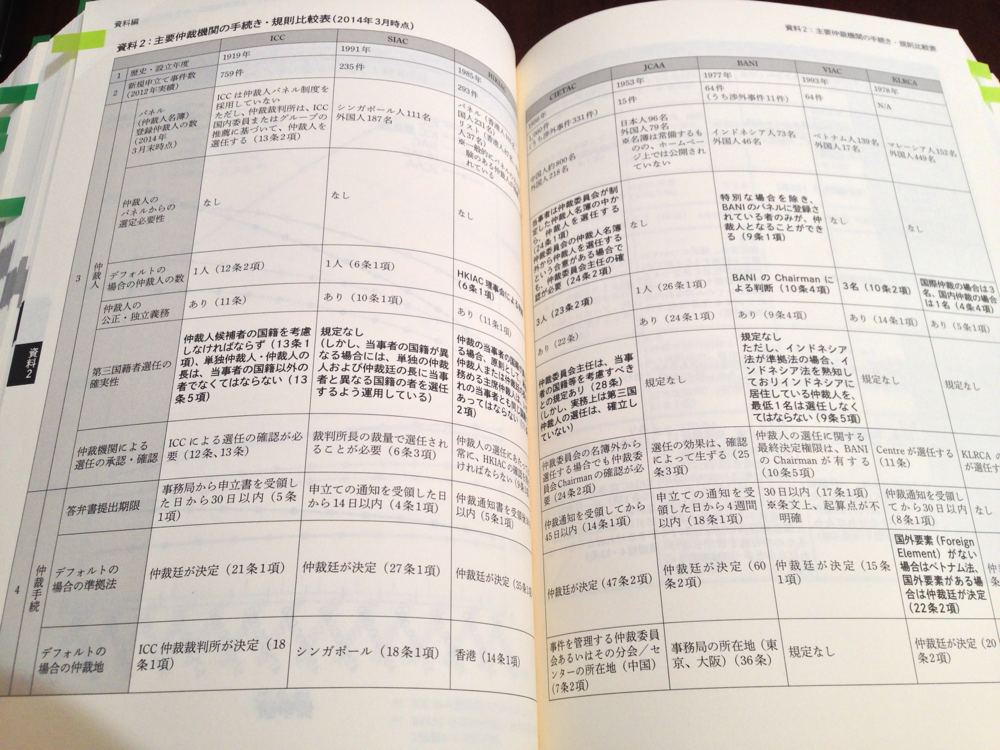 資料編
資料2：主要仲裁機関の手続き・規則比較表（2014年3月時点）
ICC
SIAC
1
歴史・設立年度
1919年
1991年
1985年
2
新規申立て事件数
（2012年実績）
759件
235件
293件
3
仲裁人
パネル
（仲裁人名簿）
登録仲裁人の数
（2014年
3月末時点）
ICCは仲裁人パネル制度を
採用していない
ただし、仲裁裁判所は、ICC
国内委員またはグループの
推薦に基づいて、仲裁人を
選任する（13条2項）
シンガポール人111名
外国人187名
仲裁人の
パネルからの
選定必要性
なし
なし
なし
デフォルトの
場合の仲裁人の数
1人（12条2項）
1人（6条1項）
HKIAC理事会による
（6条1項）
仲裁人の
公正・独立義務
あり（11条）
あり（10条1項）
あり（11条1項）
第三国籍者選任の
確実性
仲裁人候補者の国籍を考慮
しなければならず（13条1
項）、単独仲裁人・仲裁人の
長は、当事者の国籍以外の
者でなくてはならない（13
条5項）
規定なし
（しかし、当事者の国籍が異
なる場合には、単独の仲裁
人および仲裁廷の長に当事
者と異なる国籍の者を選任
するよう運用している）
仲裁の当事者の国籍
る場合、原則として
仲裁人または仲裁廷
務める主席仲裁人は
れの当事者とも同じ
あってはならない
2項）
仲裁機関による
選任の承認・確認
ICCによる選任の確認が必
要（12条、13条）
裁判所長の裁量で選任され
ることが必要（6条3項）
仲裁人の選任にあ
常に、HKIACの確認
ければならない
4
仲裁手続
答弁書提出期限
事務局から申立書を受領し
た日から30日以内（5条
1項）
申立ての通知を受領した日
から14日以内（4条1項）
仲裁通知書を受領
以内（5条1項）
デフォルトの
場合の準拠法
仲裁廷が決定（21条1項）
仲裁廷が決定（27条1項）
仲裁廷が決定（35条1
デフォルトの
場合の仲裁地
ICC仲裁裁判所が決定（18
条1項）
シンガポール（18条1項）
香港（14条1項）
資料2
資料2：主要仲裁機関の手続き・規則比較表
CIETAC
JCAA
BANI
VIAC
KLRCA
1953年
1977年
1993年
1978年
うち渉外事件331件）
15件
64件
（うち渉外事件11件）
64件
N/A
中国人約800名
外国人218名
日本人96名
外国人79名
※名簿は常備するも
のの、ホームペー
ジ上では公開され
ていない
インドネシア人73名
外国人46名
ベトナム人139名
外国人17名
マレーシア人152名
外国人449名
当事者は仲裁委員会が制
定した仲裁人名簿の中か
ら、仲裁人を選任する
（24条1項）
仲裁委員会の仲裁人名簿
外から仲裁人を選任する
という合意がある場合で
も、仲裁委員会主任の確
認が必要（24条2項）
なし
特別な場合を除き、
BANIのパネルに登録さ
れている者のみが、仲
裁人となることができ
る（9条1項）
なし
なし
3人（23条2項）
1人（26条1項）
BANIのChairmanに
よる判断（10条4項）
3名（10条2項）
国際仲裁の場合は3
名、国内仲裁の場合
は1名（4条4項）
あり（22条）
あり（24条1項）
あり（9条4項）
あり（14条1項）
あり（5条1項）
仲裁委員会主任は、当事
者の国籍等を考慮すべき
との規定あり（28条）
（しかし、実務上は第三国
仲裁人の選任は、確立し
ていない）
規定なし
規定なし
ただし、インドネシア
法が準拠法の場合、イ
ンドネシア法を熟知し
ておりインドネシアに
居住している仲裁人を、
最低1名は選任しなく
てはならない（9条5項）
規定なし
規定なし
仲裁委員会の名簿外から
選任する場合でも仲裁委
員会Chairmanの確認が必
要（24条2項）
選任の効果は、確認
によって生ずる（25
条3項）
仲裁人の選任に関する
最終決定権限は、BANI
のChairmanが有する
（10条5項）
Centreが選任する
（11条）
KLRCAの
が選任す
仲裁通知を受領してから
45日以内（14条1項）
申立ての通知を受
領した日から4週間
以内（18条1項）
30日以内（17条1項）
※条文上、起算点が不
明確
仲裁通知を受領し
てから30日以内
（8条1項）
なし
仲裁廷が決定（47条2項）
仲裁廷が決定（60
条2項）
仲裁廷が決定（15条
1項）
国外要素（Foreign
Element）がない
場合はベトナム法、
国外要素がある場
合は仲裁廷が決定
（22条2項）
事件を管理する仲裁委員
会あるいはその分会／セ
ンターの所在地（中国）
（7条2項）
事務局の所在地（東
京、大阪）（36条）
規定なし
仲裁廷が決定（20
条2項）